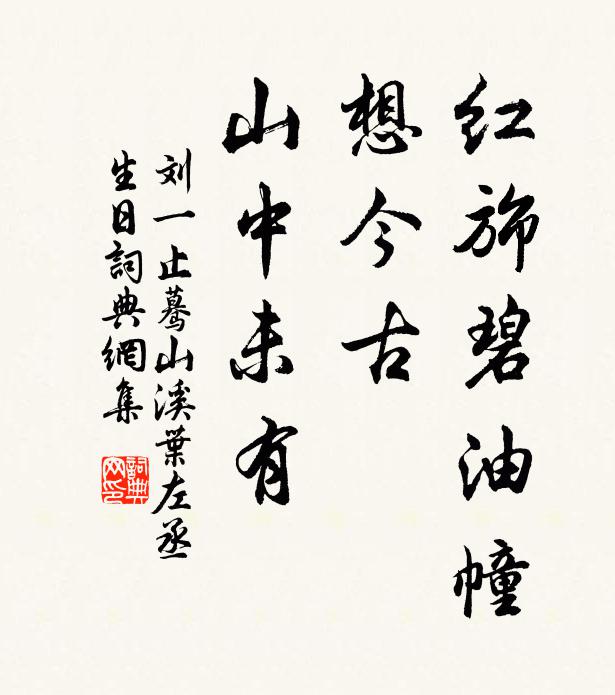 红旆碧油幢
想今古
山中未有
刘一止蓦山溪葉左丞
生日詞典網集
詞典网印